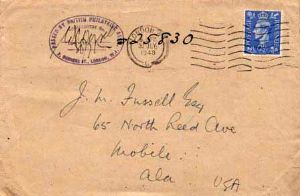 PASSED BY BRITISH PHILATELIC
LONDON
1948
25830
J. M. Fussell Esq
65 North Reed Ave
Mobile
Ala
USA